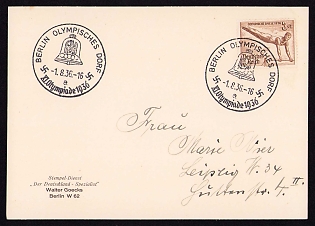 BERLIN OLYMPISCHES DORF
-1.8.36.-16
a
XI.Olympiade 1936
BERLIN OLYMPISCHES DORF
-1.8.36.-16
a
XI.Olympiade 1936
Deutsches Reich
Frau
Marie Bier
Leipzig W. 34
Stempel-Dienst
„Der Deutschland - Spezialist"
Walter Goecks
Berlin W 62